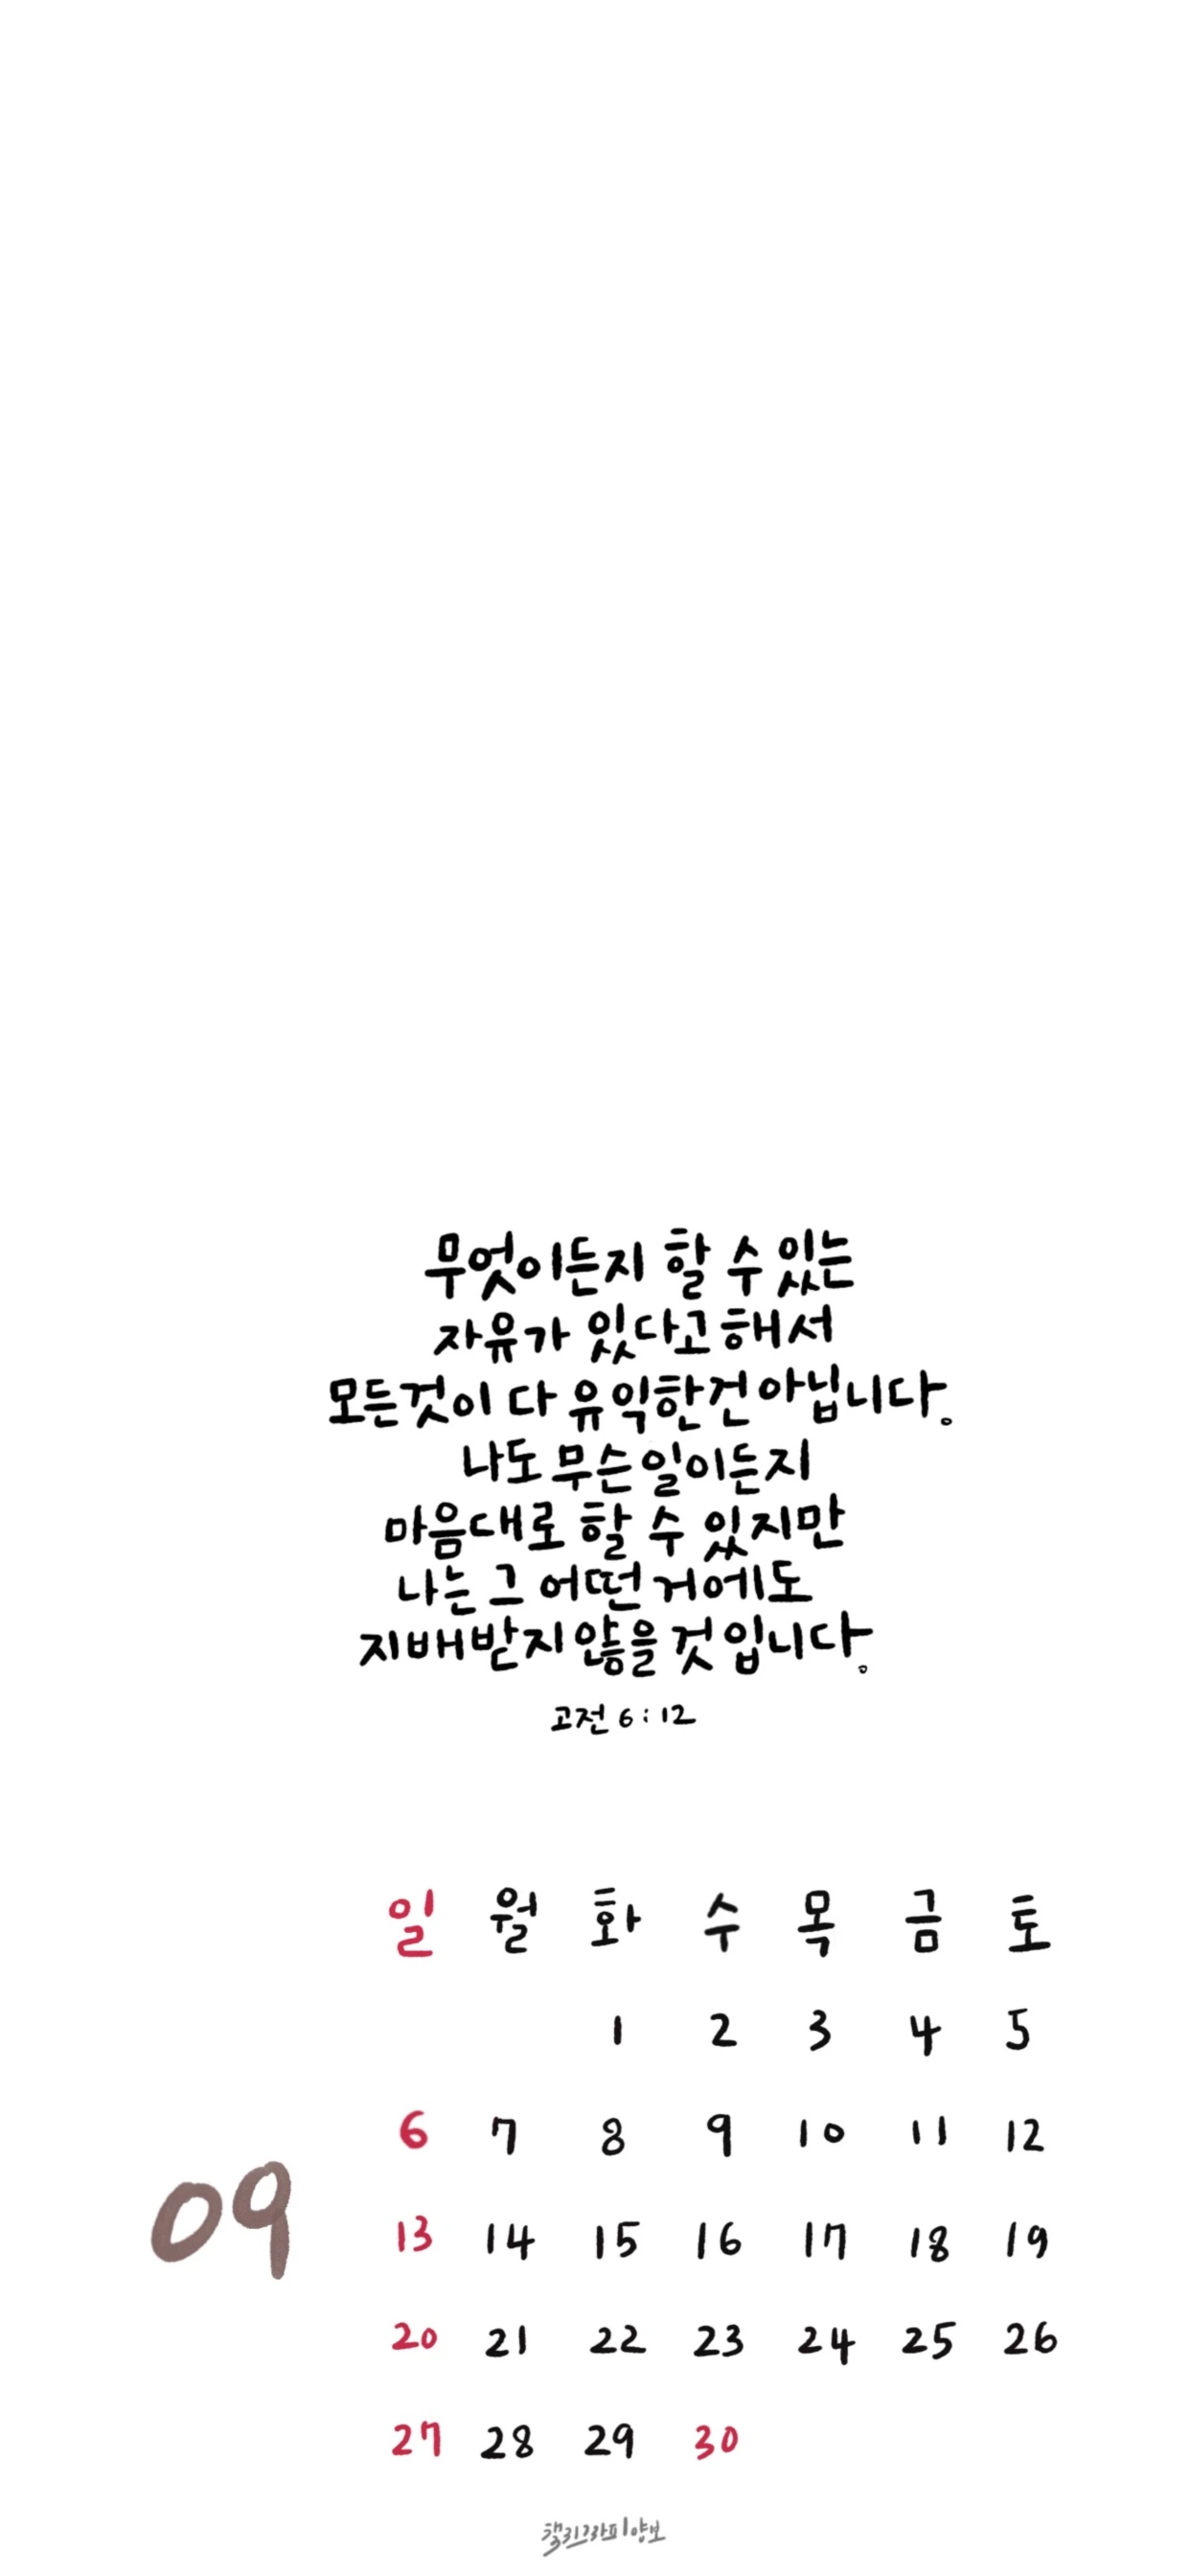 무엇이든지 할 수 있는
자유가 있다고 해서
모든것이 다 유익한건 아닙니다.
나도 무슨 일이든지
마음대로 할 수 있지만
나는 그 어떤 거에도
지배받지 않을 것입니다.
고전 6:12
일 월 화 수 목 금 토
1 2 3 4 5
6 7 8 9 10 11 12
09
13 14 15 16 17 18 19
20 21 22 23 24 25 26
27 28 29 30
캘리그라피양보